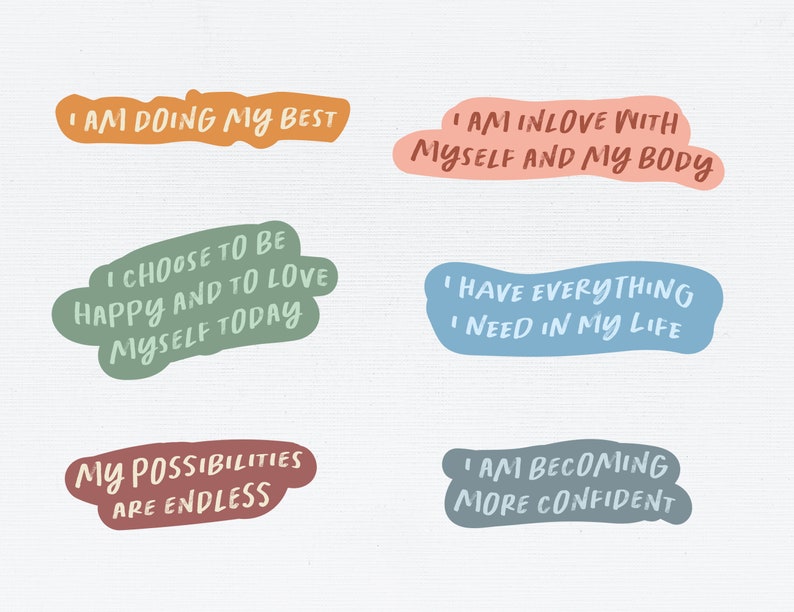 I AM DOING MY BEST
I AM INLOVE WITH
MYSELF AND MY BODY
I CHOOSE TO BE
HAPPY AND TO LOVE
MYSELF TODAY
I HAVE EVERYTHING
I NEED IN MY LIFE
MY POSSIBILITIES
ARE ENDLESS
I AM BECOMING
MORE CONFIDENT